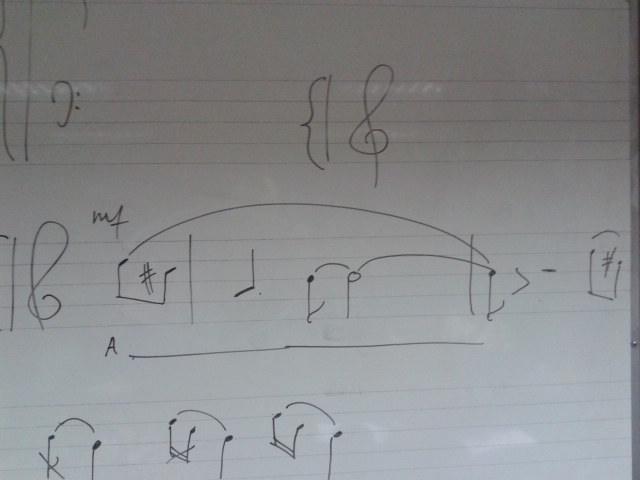 mf
A